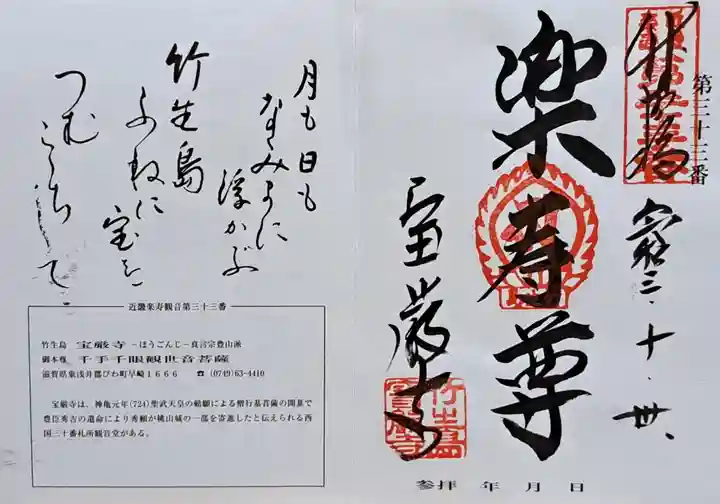 第三十三番
楽寿尊
宝厳寺
竹生島
参拝 年 月 日
月も日も
なみまに
浮かぶ
竹生島
ふねに
宝を
つむ
こゝちして
近畿楽寿観音第三十三番
竹生島 宝厳寺-ほうごんじ-真言宗豊山派
御本尊 千手千眼観世音菩薩
滋賀県東浅井郡びわ町早崎1666 ☎ (0749)63-4410
宝厳寺は、神亀元年(724)聖武天皇の勅願による僧行基菩薩の開基で
豊臣秀吉の遺命により秀頼が桃山城の一部を寄進したと伝えられる西
国三十番札所観音堂がある。